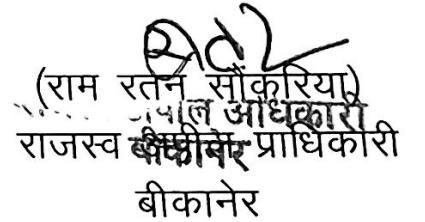 (राम रतन सौंकरिया)
अधिकारी
राजस्व अपील प्राधिकारी
बीकानेर
बीकानेर